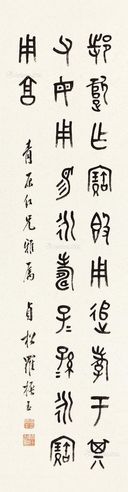 郜遣乍寶𣪘用追孝于其
父母用易永壽子〻孫〻永寶
用享
仁兄雅屬 貞松羅振玉